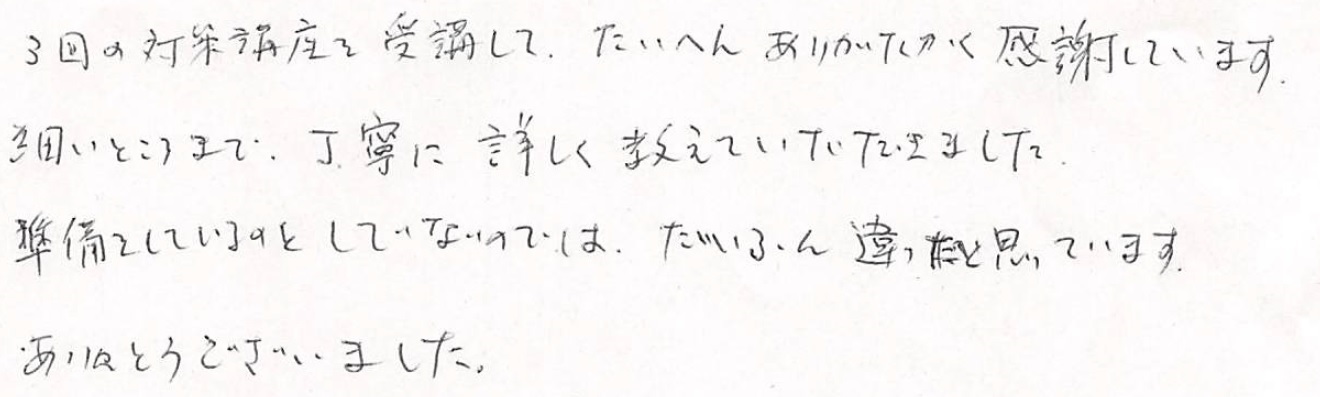 3回の対策講座を受講して、たいへんありがたく感謝しています。
細いところまで、丁寧に詳しく教えていただきました。
準備をしているのとしていないのでは、だいぶん違ったと思っています。
ありがとうございました。